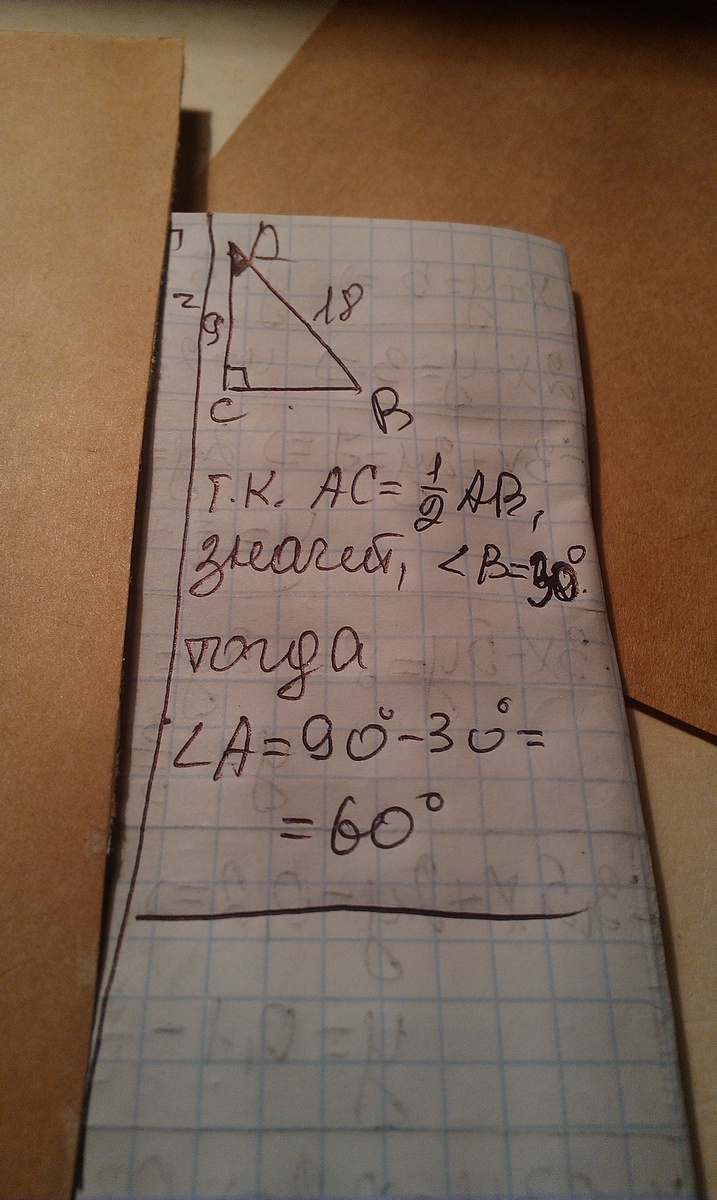 A
18
9
C
B
т.к. AC = 1/2 AB,
значит, ∠B=30°.
тогда
∠A = 90° - 30° =
= 60°